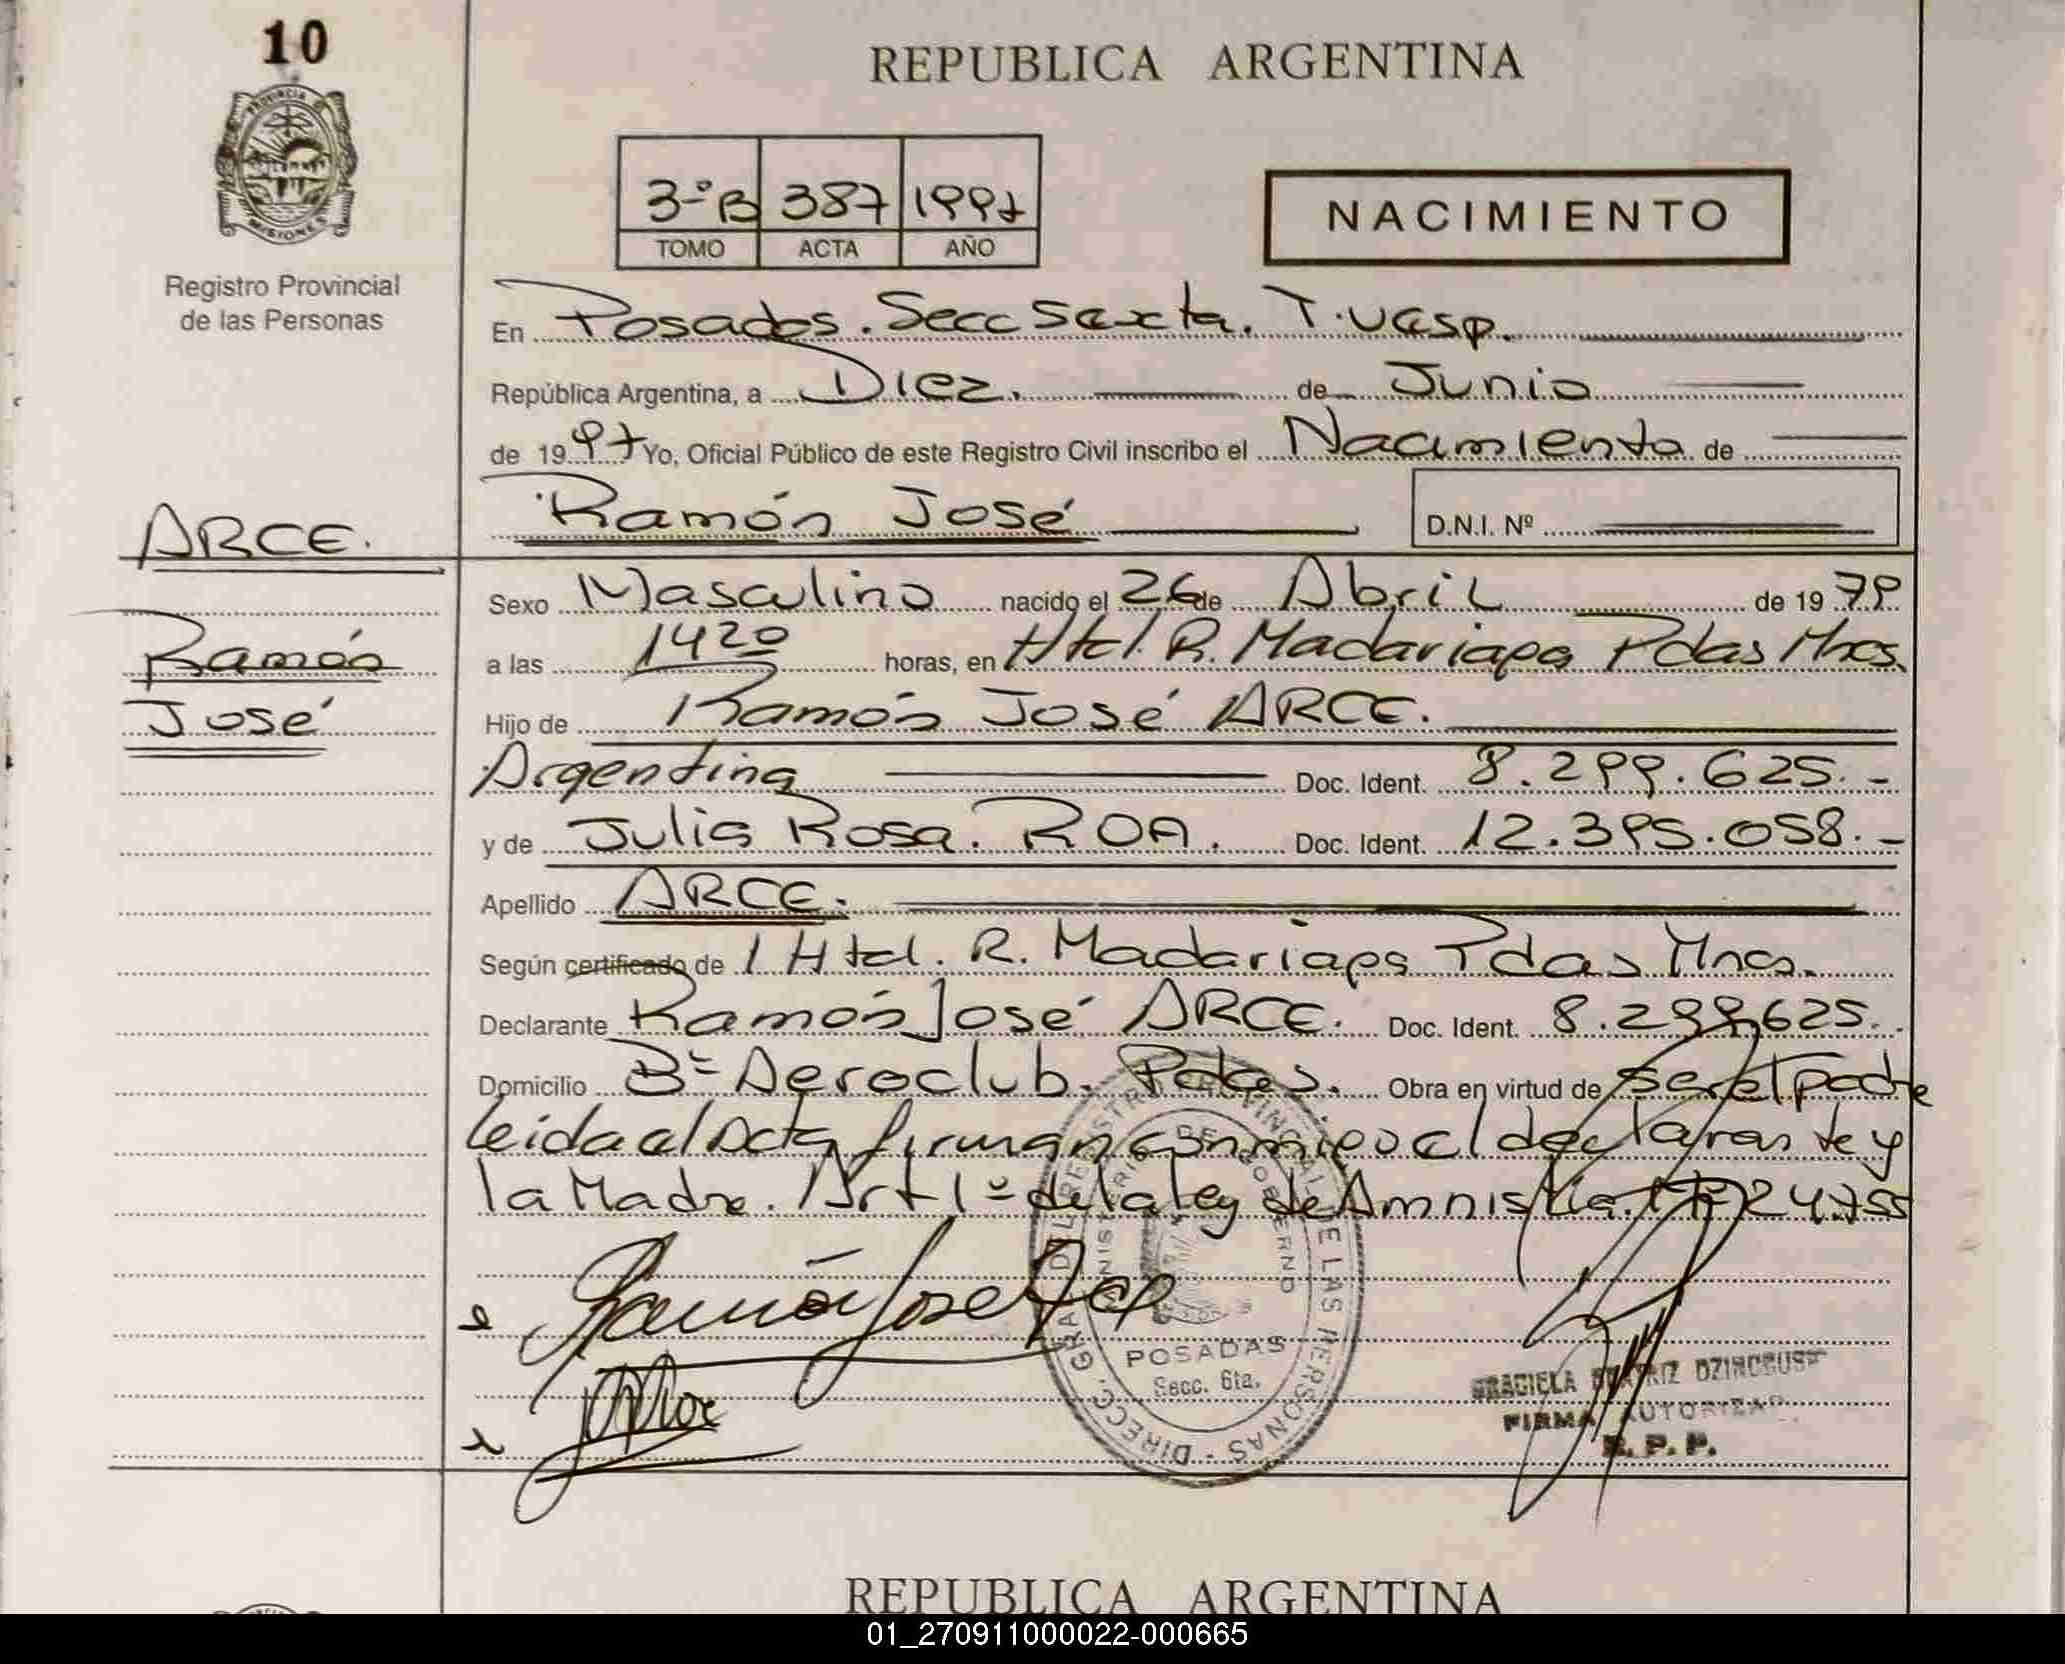 10
REPUBLICA ARGENTINA
PROVINCIA D
MISIONES
3-ºB 387 1997
TOMO ACTA AÑO
NACIMIENTO
Registro Provincial
de las Personas
En Posadas. Secc Sexta.
República Argentina, a Diez. de Junio
de 1997 Yo, Oficial Público de este Registro Civil inscribo el Nacimiento de
Ramón José
D.N.I. Nº
ARCE.
Ramón
José
Sexo Masculino nacido el 26 de Abril de 1979
a las 1420 horas, en Htal. R. Madariaga Pdas Mnes.
Hijo de Ramón José ARCE.
Argentina Doc. Ident. 8.299.625.-
y de Julia Rosa. ROA. Doc. Ident. 12.395.058.-
Apellido ARCE.
Según certificado de l Htal. R. Madariaga Pdas Mnes.
Declarante Ramón José ARCE. Doc. Ident. 8.299.625.
Domicilio Bº Aeroclub. Pdas. Obra en virtud de ser el padre
leida el Acta firman conmigo el declarante y
la Madre. Art 1º de la ley de Amnistia Nº 24.755
Ramón Jose Arce
DIRECC. GRAL. DEL REGISTRO PROVINCIAL DE LAS PERSONAS
MINISTERIO DE GOBIERNO
POSADAS
Secc. 6ta.
GRACIELA BEATRIZ
FIRMA AUTORIZAD
R. P. P.
REPUBLICA ARGENTINA
01_270911000022-000665